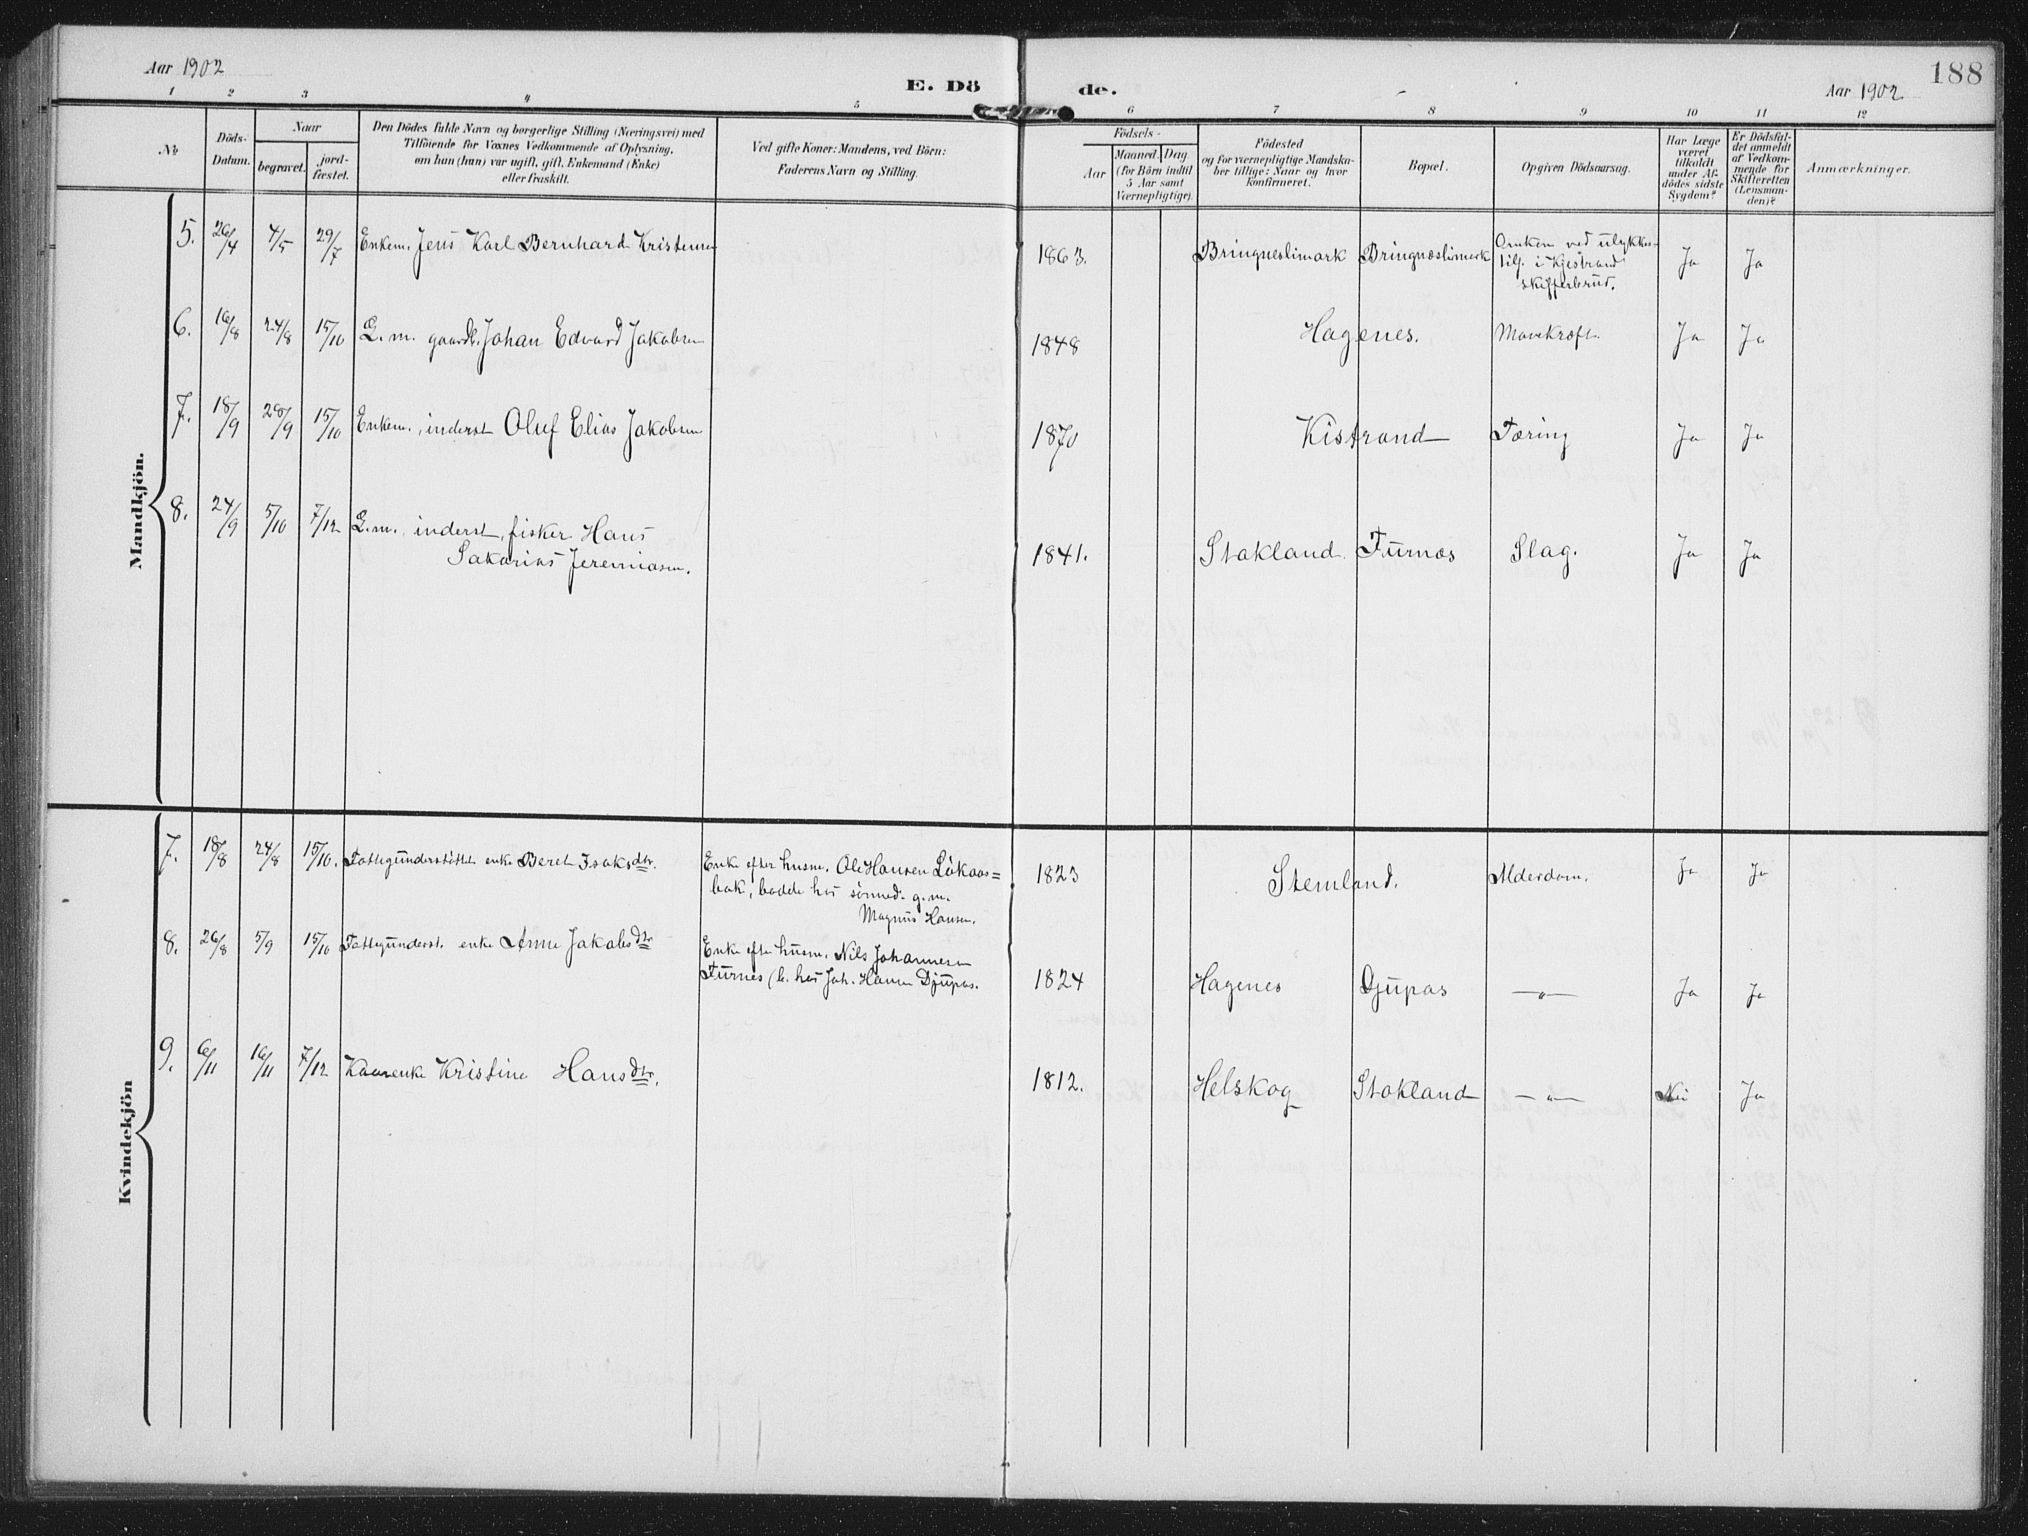 Aar 1902
E. Dö
de.
Aar 1902
188
1 2 3 4 5 6 7 8 9 10 11 12
No.
Döds-
Datum.
Naar
begravet.
jord-
fæstet.
Den Dödes fulde Navn og borgerlige Stilling (Næringsvei) med
Tilföiende for Voxnes Vedkommende af Oplysning,
om han (hun) var ugift, gift, Enkemand (Enke)
eller fraskilt.
Ved gifte Koner: Mandens, ved Börn:
Faderens Navn og Stilling.
Födsels-
Aar
Maaned. Dag.
(for Börn indtil
5 Aar samt
Værnepligtige).
Födested
og for værnepligtige Mandska-
ber tillige: Naar og hvor
konfirmeret.
Bopæl.
Opgiven Dödsaarsag.
Har Læge
været
tilkaldt
under Af-
dödes sidste
Sygdom?
Er Dödsfal-
det anmeldt
af Vedkom-
mende for
Skifteretten
(Lensman-
den)?
Anmærkninger.
Mandkjön.
5. 26/4 4/5 29/7 Enkem. Jens Karl Bernhard Kristensen 1863. Bringneslimark Bringnæslimark Omkom ved ulykkes-
tilf. i Kjestrand
skifferbrud. Ja Ja
6. 16/8 24/8 15/10 G. m. gaardb. Johan Edvard Jakobsen 1848 Hagenes. Mavekræft. Ja Ja
7. 18/9 28/9 15/10 Enkem., inderst Oluf Elias Jakobsen 1870 Kistrand Tæring Ja Ja
8. 24/9 5/10 7/12 G. m., inderst, fisker Hans
Sakarias Jeremiasen. 1841. Stakland Furnæs Slag. Ja Ja
Kvindekjön
7. 18/8 24/8 15/10. Fattigunderstöttet enke Beret Isaksdtr. Enke efter husm. Ole Hansen Løkaas=
bak, bodde hos sønned. g. m.
Magnus Hansen. 1823 Stemland. Alderdom. Ja Ja
8. 26/8 5/9 15/10 Fattigunderst. enke Anne Jakobsdtr Enke efter husm. Nils Johannesen
Furnes (b. hos Joh. Hansen Djupas. 1824 Hagenes Djupas —〃— Ja Ja
9. 6/11 16/11 7/12 Kaarenke Kristine Hansdtr. 1812. Helskog Stakland —〃— Nei Ja